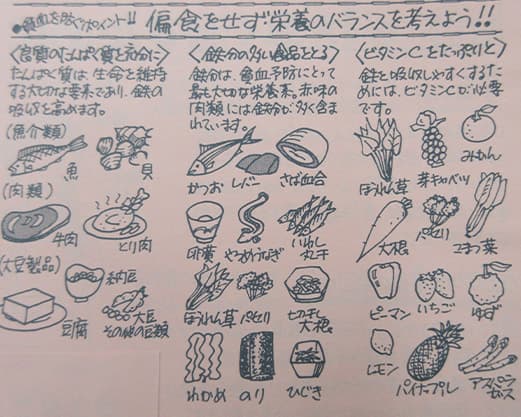 ●貧血を防ぐポイント!! 偏食をせず栄養のバランスを考えよう!!
〈良質のたんぱく質を充分に〉
たんぱく質は、生命を維持
する大切な要素であり、鉄の
吸収を高めます。
(魚介類)
魚 貝
(肉類)
牛肉 とり肉
(大豆製品)
納豆
豆腐 大豆
その他の豆類
〈鉄分の多い食品をとる〉
鉄分は、貧血予防にとって
最も大切な栄養素。赤味の
肉類には鉄分が多く含ま
れています。
かつお レバー さば血合
卵黄 やつめうなぎ いわし
丸干
ほうれん草 パセリ 切り干し
大根
わかめ のり ひじき
〈ビタミンCをたっぷりと〉
鉄を吸収しやすくするた
めには、ビタミンCが必要
です。
ほうれん草 芽キャベツ みかん
大根 パセリ こまつ菜
ピーマン いちご ゆず
レモン パイナップル アスパラ
ガス